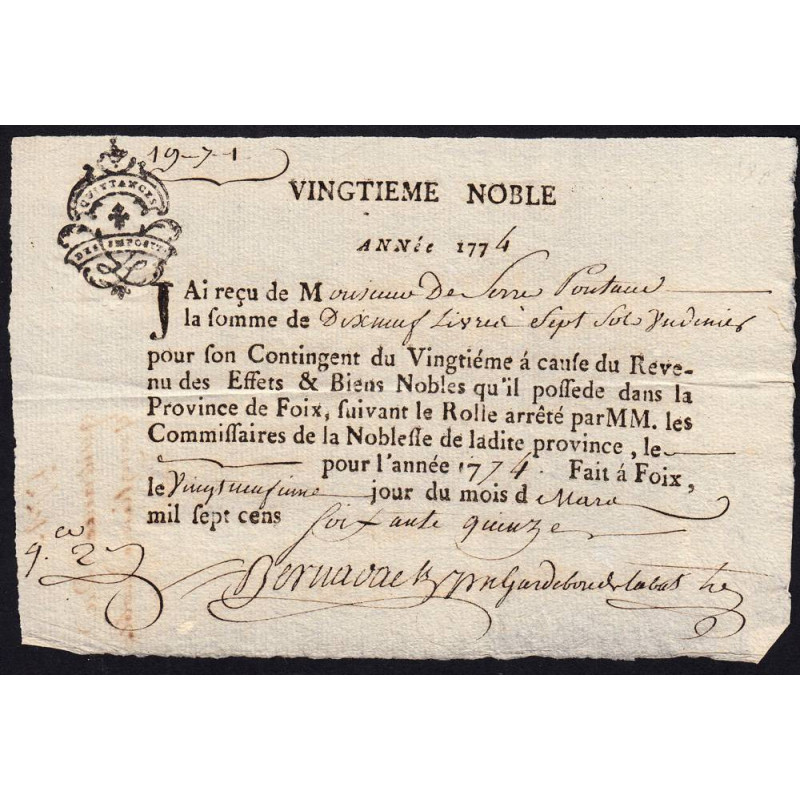 19-7-1
QUITTANCES
DES IMPOSTS
VINGTIEME NOBLE
ANNée 1774
JAi reçu de Monsieur De Serre Pontaut
la somme de Dixneuf Livres Sept Sols Undenier
pour son Contingent du Vingtiéme á cause du Reve-
nu des Effets & Biens Nobles qu'il possede dans la
Province de Foix, suivant le Rolle arrêté par MM. les
Commissaires de la Noblesse de ladite province, le
pour l'année 1774. Fait á Foix,
le Vingtneufieme jour du mois d Mars
mil sept cens soixante quinze